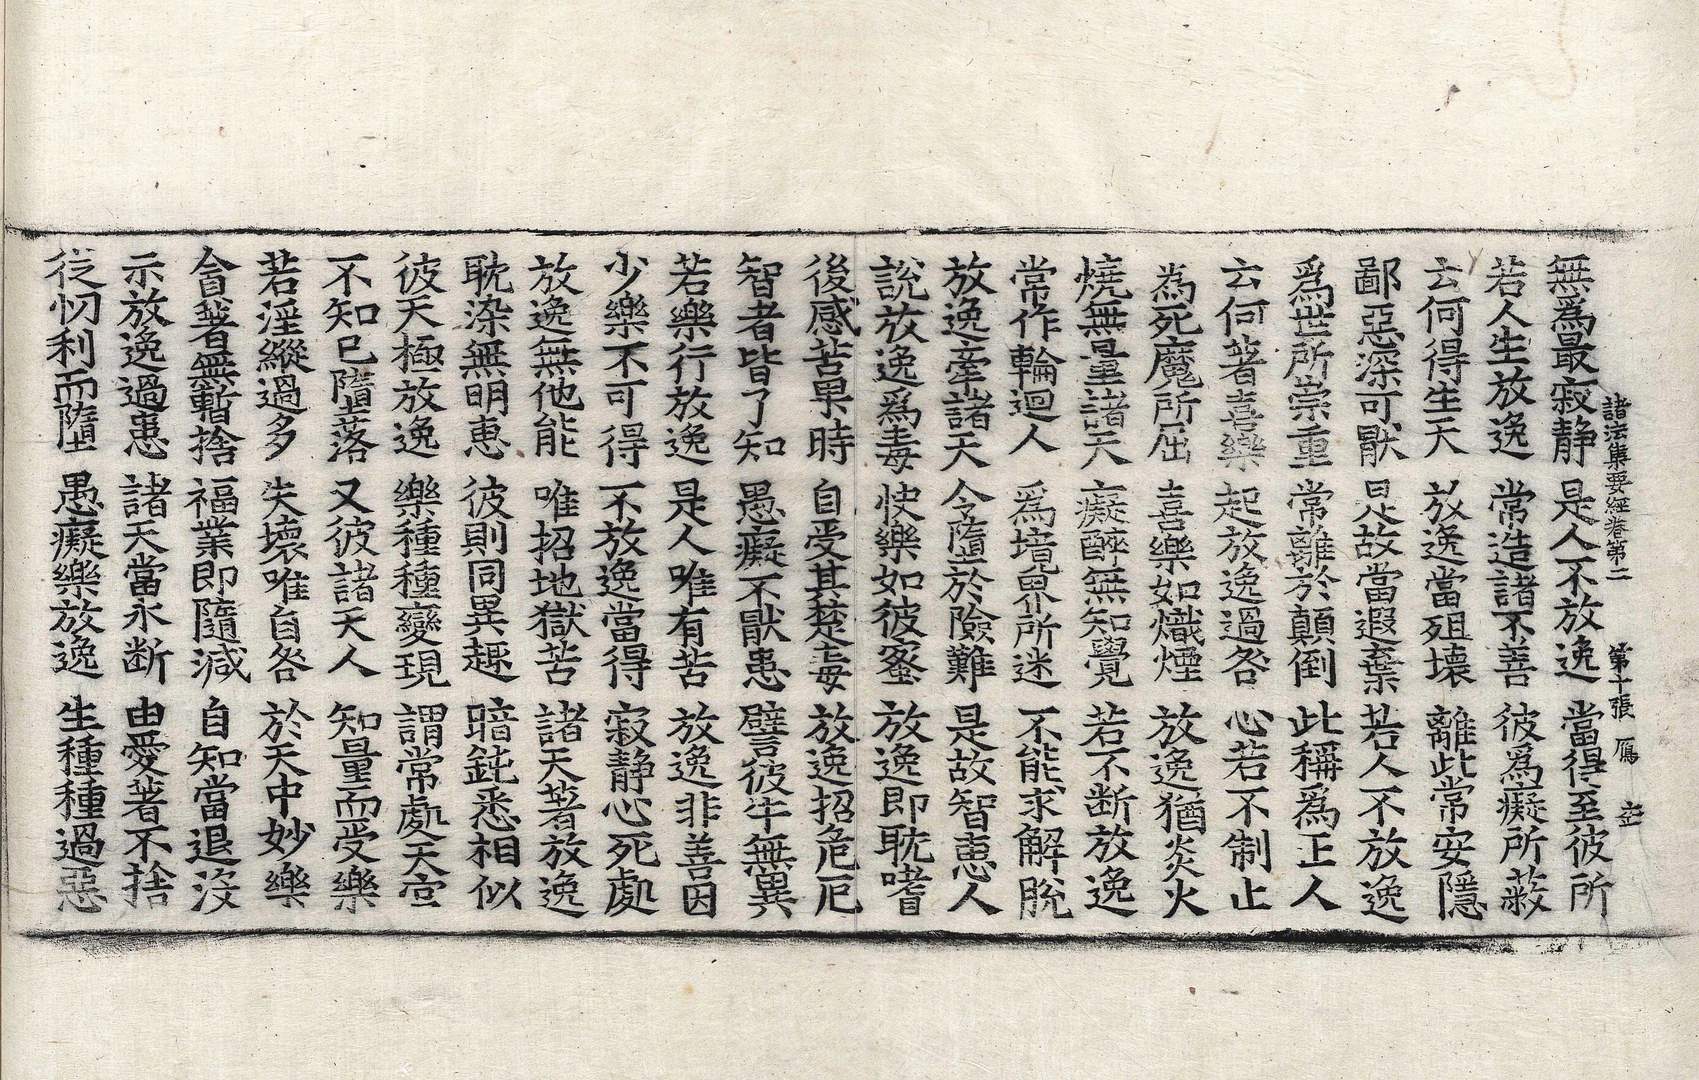 諸法集要經卷第二　第十張　鴈
無爲最寂静　是人不放逸　當得至彼所
若人生放逸　常造諸不善　彼爲癡所蔽
云何得生天　放逸當殂壞　離此常安隱
鄙惡深可猒　是故當遐棄　若人不放逸
爲世所崇重　常離於顛倒　此稱爲正人
云何著喜樂　起放逸過咎　心若不制止
為死魔所屈　喜樂如熾煙　放逸猶炎火
燒無量諸天　癡醉無知覺　若不断放逸
常作輪迴人　爲境界所迷　不能求解脫
放逸牽諸天　令墮於險難　是故智恵人
說放逸爲毒　快樂如彼蜜　放逸即耽嗜
後感苦果時　自受其楚毒　放逸招危厄
智者皆了知　愚癡不猒患　譬彼牛無異
若樂行放逸　是人唯有苦　放逸非善因
少樂不可得　不放逸當得　寂静心死處
放逸無他能　唯招地獄苦　諸天著放逸
耽染無明恵　彼則同異趣　暗鈍悉相似
彼天極放逸　樂種種變現　謂常處天宫
不知已墮落　又彼諸天人　知量而受樂
若淫縱過多　失壞唯自咎　於天中妙樂
貪著無暫捨　福業即隨減　自知當退沒
示放逸過患　諸天當永断　由愛著不捨
從忉利而墮　愚癡樂放逸　生種種過惡